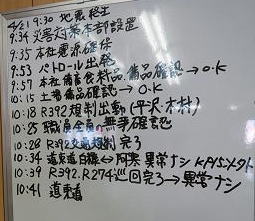 4/21 9:30 地震発生
9:34 災害対策本部設置
9:35 本社電源確保
9:53 パトロール出発
9:57 本社備蓄食料品、備品確認→O・K
10:15 土場備品確認→O・K
10:18 R392規制出動(平沢・木村)
10:25 職員全員の無事確認
10:28 R392交通規制完了
10:34 道東道白糠⇔阿寒 異常ナシ
10:39 R392.R274巡回完了→異常ナシ
10:41 道東道